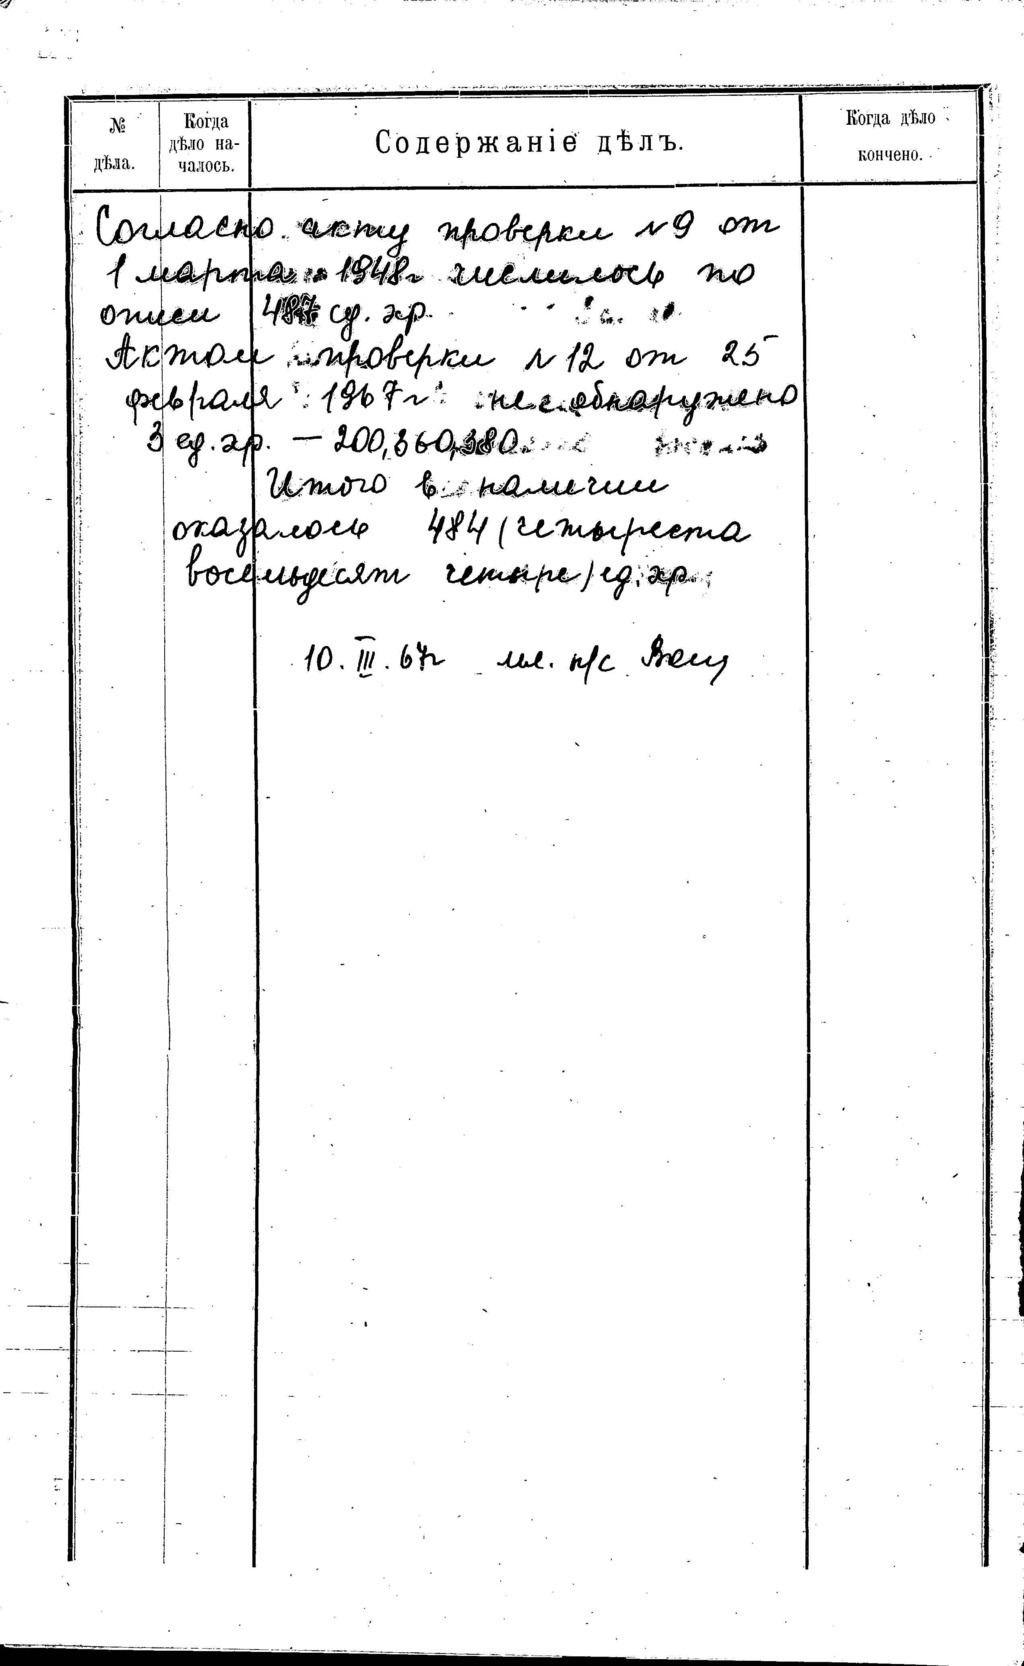 №
дѣла.
Когда
дѣло на-
чалось.
Содержаніе дѣлъ.
Когда дѣло
кончено.
Согласно акту проверки №9 от
1 марта 1948г числилось по
описи 487 ед. хр.
Актом проверки №12 от 25
февраля 1967г не обнаружено
3 ед. хр. — 200, 360, 380
Итого в наличии
оказалось 484 (четыреста
восемьдесят четыре) ед. хр.
10. III. 67г мл. н/с